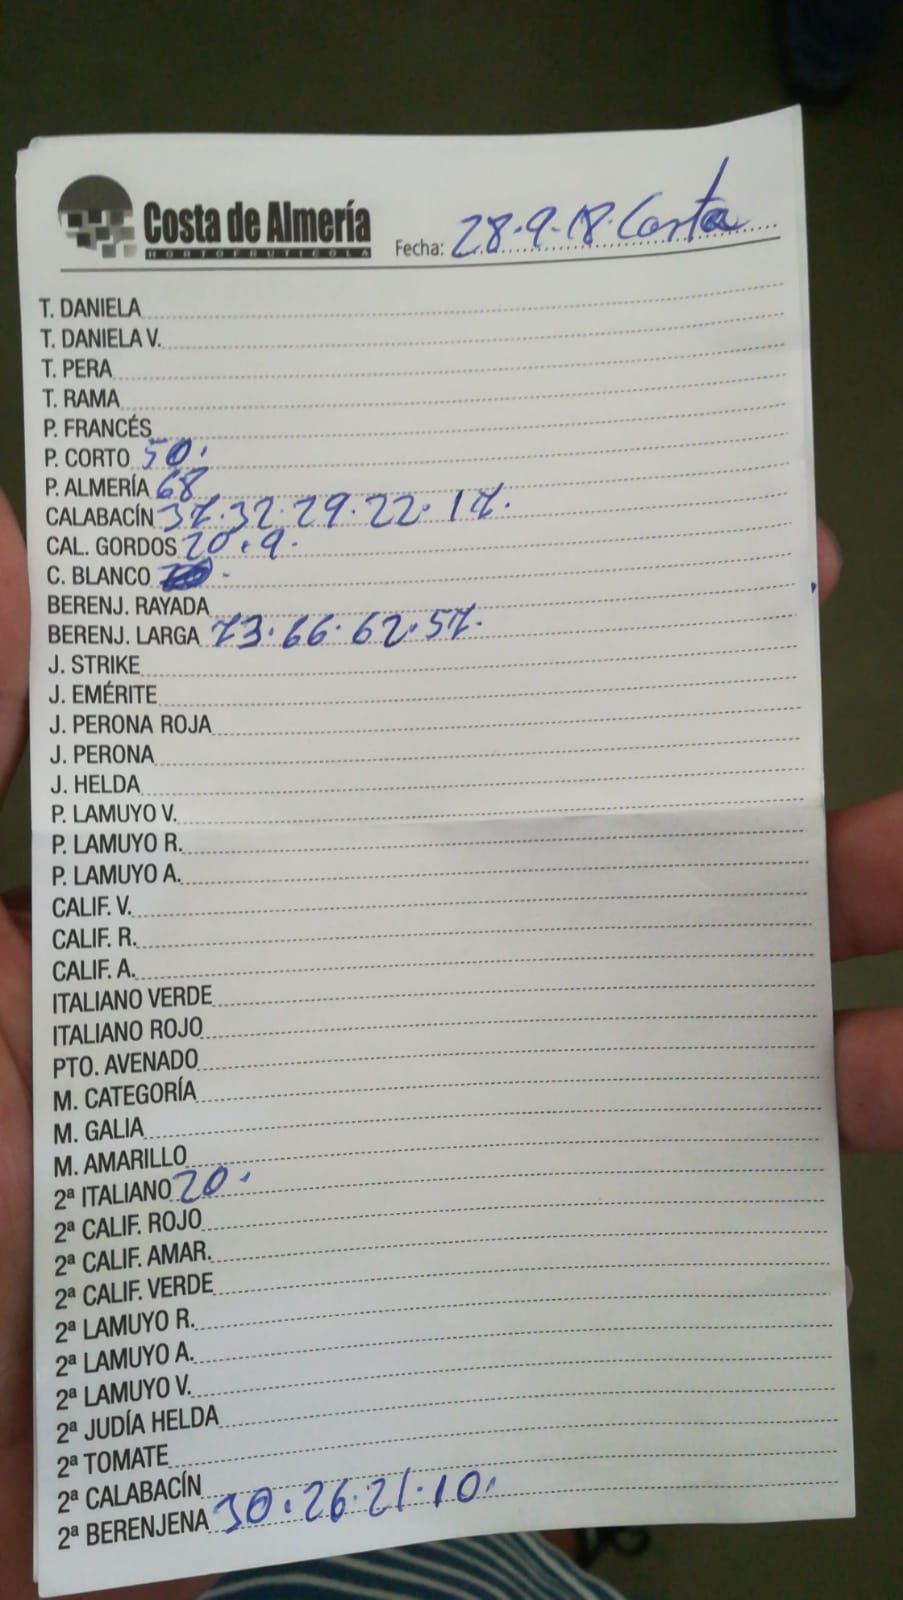 Costa de Almería
HORTOFRUTICOLA
Fecha: 28.9.18. Costa
T. DANIELA
T. DANIELA V.
T. PERA
T. RAMA
P. FRANCÉS
P. CORTO 50.
P. ALMERÍA 68
CALABACÍN 37.32.29.22.17.
CAL. GORDOS 20.9.
C. BLANCO
BERENJ. RAYADA
BERENJ. LARGA 73.66.62.57.
J. STRIKE
J. EMÉRITE
J. PERONA ROJA
J. PERONA
J. HELDA
P. LAMUYO V.
P. LAMUYO R.
P. LAMUYO A.
CALIF. V.
CALIF. R.
CALIF. A.
ITALIANO VERDE
ITALIANO ROJO
PTO. AVENADO
M. CATEGORÍA
M. GALIA
M. AMARILLO
2ª ITALIANO 20.
2ª CALIF. ROJO
2ª CALIF. AMAR.
2ª CALIF. VERDE
2ª LAMUYO R.
2ª LAMUYO A.
2ª LAMUYO V.
2ª JUDÍA HELDA
2ª TOMATE
2ª CALABACÍN
2ª BERENJENA 30.26.21.10.